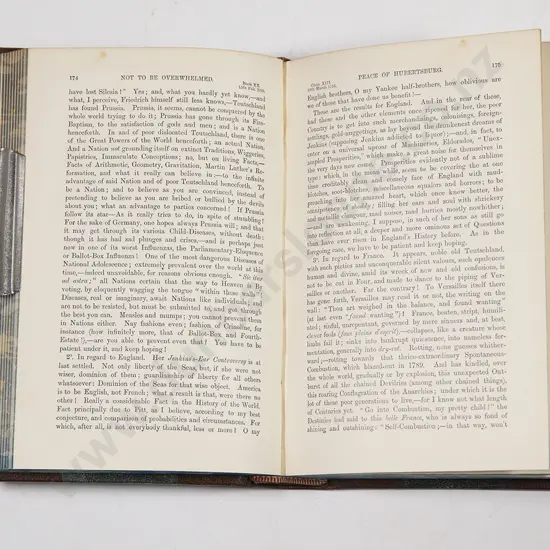 174 NOT TO BE OVERWHELMED. Book XX.
15th Feb. 1763.
have lost Silesia!" Yes; and, what you hardly yet know,—and
what, I perceive, Friedrich himself still less knows,—Teutschland
has found Prussia. Prussia, it seems, cannot be conquered by the
whole world trying to do it; Prussia has gone through its Fire-
Baptism, to the satisfaction of gods and men; and is a Nation
henceforth. In and of poor dislocated Teutschland, there is one
of the Great Powers of the World henceforth; an actual Nation.
And a Nation not grounding itself on extinct Traditions, Wiggeries,
Papistries, Immaculate Conceptions; no, but on living Facts,—
Facts of Arithmetic, Geometry, Gravitation, Martin Luther's Re-
formation, and what it really can believe in:—to the infinite
advantage of said Nation and of poor Teutschland henceforth. To
be a Nation; and to believe as you are convinced, instead of
pretending to believe as you are bribed or bullied by the devils
about you; what an advantage to parties concerned! If Prussia
follow its star—As it really tries to do, in spite of stumbling!
For the sake of Germany, one hopes always Prussia will; and that
it may get through its various Child-Diseases, without death;
though it has had sad plunges and crises,—and is perhaps just
now in one of its worst Influenzas, the Parliamentary-Eloquence
or Ballot-Box Influenza! One of the most dangerous Diseases of
National Adolescence; extremely prevalent over the world at this
time,—indeed unavoidable, for reasons obvious enough. "Sic itur
ad astra;" all Nations certain that the way to Heaven is By
voting, by eloquently wagging the tongue "within those walls"!
Diseases, real or imaginary, await Nations like individuals; and
are not to be resisted, but must be submitted to, and got through
the best you can. Measles and mumps; you cannot prevent them
in Nations either. Nay fashions even; fashion of Crinoline, for
instance (how infinitely more, that of Ballot-Box and Fourth-
Estate!),—are you able to prevent even that? You have to be
patient under it, and keep hoping!
2°. In regard to England. Her Jenkins's-Ear Controversy is at
last settled. Not only liberty of the Seas, but, if she were not
wiser, dominion of them; guardianship of liberty for all others
whatsoever: Dominion of the Seas for that wise object. America
is to be English, not French; what a result is that, were there no
other! Really a considerable Fact in the History of the World.
Fact principally due to Pitt, as I believe, according to my best
conjecture, and comparison of probabilities and circumstances. For
which, after all, is not everybody thankful, less or more? O my
Chap. XIII. PEACE OF HUBERTSBURG. 175
English brothers, O my Yankee half-brothers, how oblivious are
we of those that have done us benefit!—
These are the results for England. And in the rear of these,
had these and the other elements once ripened for her, the poor
Country is to get into such merchandisings, colonisings, foreign-
settlings, gold-nuggetings, as lay beyond the drunkenest dreams of
Jenkins (supposing Jenkins addicted to liquor);—and, in fact, to
enter on a universal uproar of Machineries, Eldorados, "Unex-
ampled Prosperities," which make a great noise for themselves in
the very days now come. Prosperities evidently not of a sublime
type: which, in the mean while, seem to be covering the at one
time creditably clean and comely face of England with mud-
blotches, soot-blotches, miscellaneous squalors and horrors; to be
preaching into her amazed heart, which once knew better, the
omnipotence of shoddy; filling her ears and soul with shriekery
and metallic clangour, mad noises, mad hurries mostly nowhither;
—and are awakening, I suppose, in such of her sons as still go
into reflection at all, a deeper and more ominous set of Questions
than have ever risen in England's History before. As in the
foregoing case, we have to be patient and keep hoping.
3°. In regard to France. It appears, noble old Teutschland,
with such pieties and unconquerable silent valours, such opulences
human and divine, amid its wreck of new and old confusions, is
not to be cut in Four, and made to dance to the piping of Ver-
sailles or another. Far the contrary! To Versailles itself there
has gone forth, Versailles may read it or not, the writing on the
wall: "Thou art weighed in the balance, and found wanting"
(at last even "found wanting")! France, beaten, stript, humili-
ated; sinful, unrepentant, governed by mere sinners and, at best,
clever fools (fous pleins d'esprit),—collapses, like a creature whose
limbs fail it; sinks into bankrupt quiescence, into nameless fer-
mentation, generally into dry-rot. Rotting, none guesses whither-
ward;—rotting towards that thrice-extraordinary Spontaneous-
Combustion, which blazed-out in 1789. And has kindled, over
the whole world, gradually or by explosion, this unexpected Out-
burst of all the chained Devilries (among other chained things),
this roaring Conflagration of the Anarchies; under which it is the
lot of these poor generations to live,—for I know not what length
of Centuries yet. "Go into Combustion, my pretty child!" the
Destinies had said to this belle France, who is always so fond of
shining and outshining: "Self-Combustion;—in that way, won't